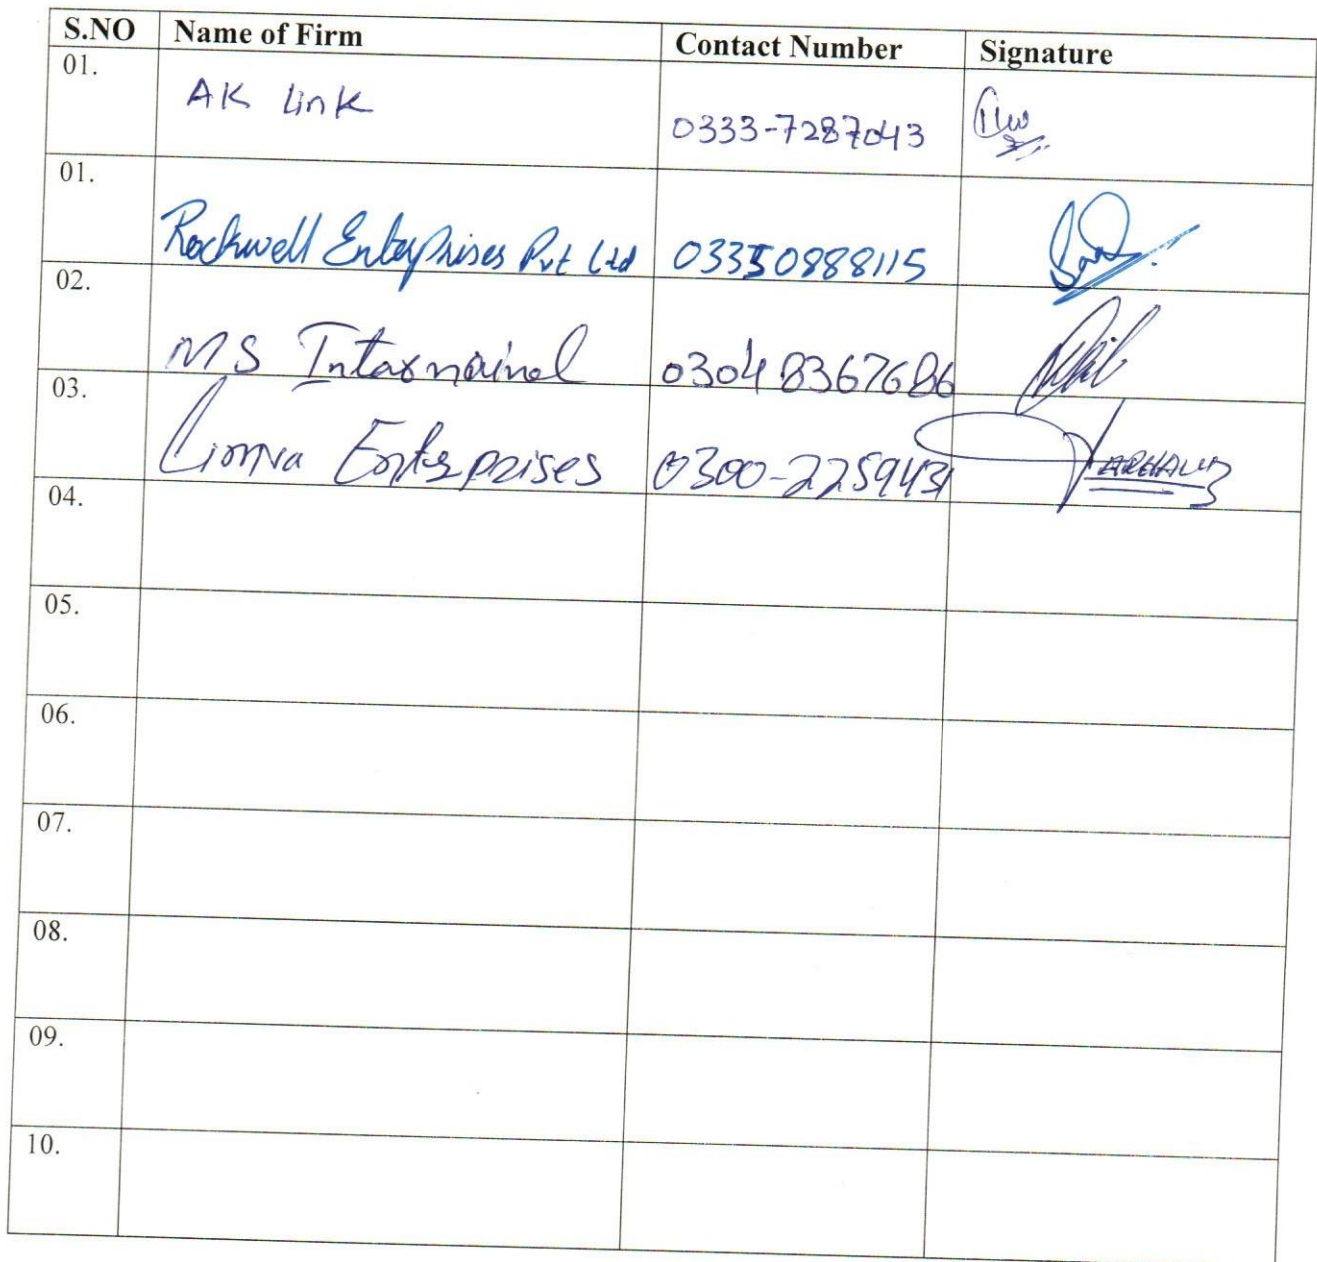 S.NO Name of Firm Contact Number Signature
01. AK Link 0333-7287043
01. Rockwell Enterprises Pvt Ltd 03350888115
02. MS Intarnainol 03048367686
03. Enterprises 0300-2259431
04.
05.
06.
07.
08.
09.
10.